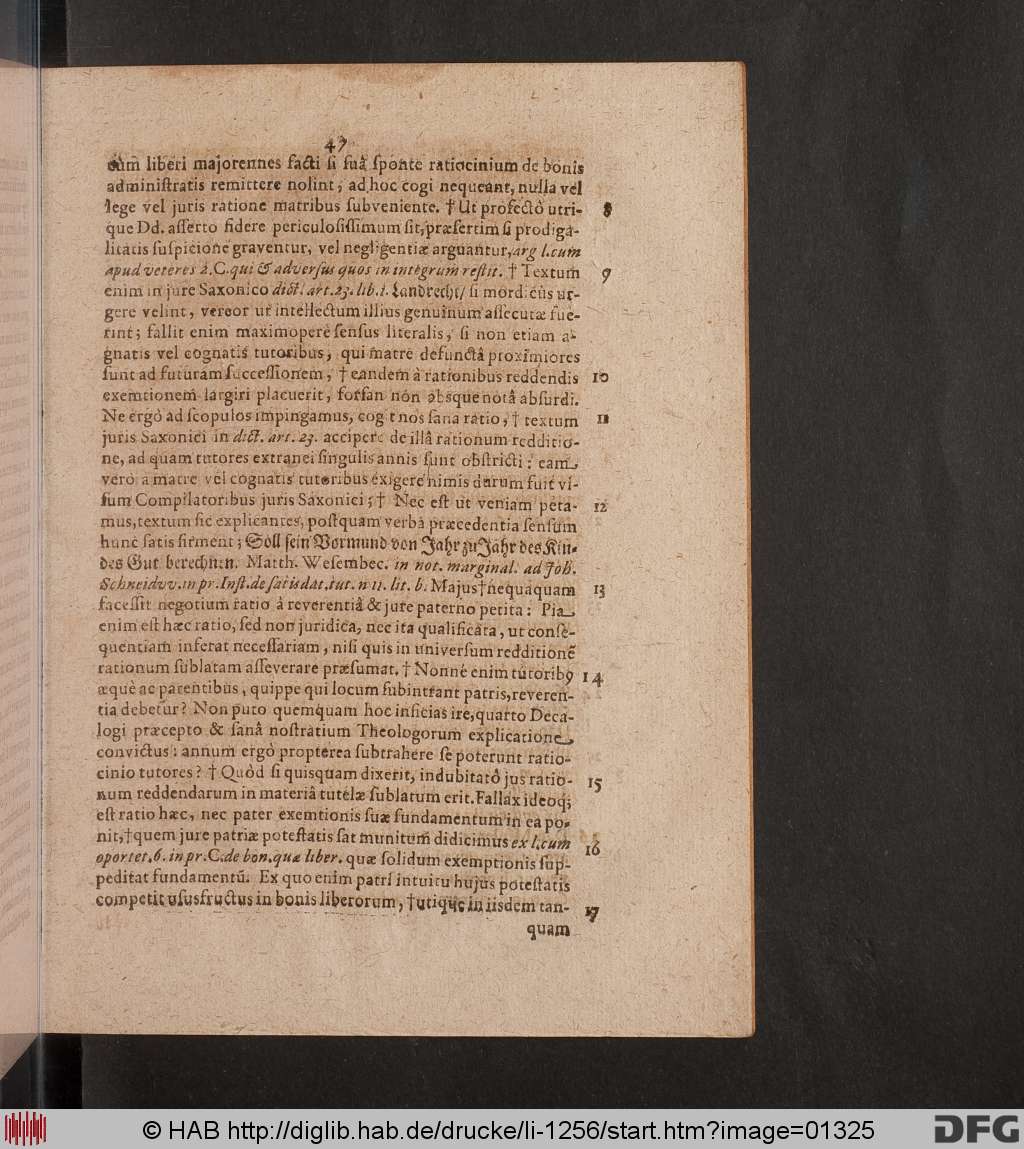 47
cùm liberi majorennes facti si suâ sponte ratiocinium de bonis
administratis remittere nolint, ad hoc cogi nequeant, nulla vel
lege vel juris ratione matribus subveniente. † Ut profectò utri- 8
que Dd. asserto fidere periculosissimum sit, præsertim si prodiga-
litatis suspicione graventur, vel negligentiæ arguantur, arg l. cum
apud veteres 2. C. qui & adversus quos in integrum restit. † Textum 9
enim in jure Saxonico dict. art. 23. lib. 1. Landrecht/ si mordicùs ur-
gere velint, vereor ut intellectum illius genuinum assecutæ fue-
rint; fallit enim maximoperè sensus literalis, si non etiam a-
gnatis vel cognatis tutoribus, qui matre defunctâ proximiores
sunt ad futuram successionem, † eandem à rationibus reddendis 10
exemtionem largiri placuerit, forsan non absque notâ absurdi.
Ne ergò ad scopulos impingamus, cogit nos sana ratio, † textum 11
juris Saxonici in dict. art. 23. accipere de illâ rationum redditio-
ne, ad quam tutores extranei singulis annis sunt obstricti: eam
verò à matre vel cognatis tutoribus exigere nimis durum fuit vi-
sum Compilatoribus juris Saxonici; † Nec est ut veniam peta- 12
mus, textum sic explicantes, postquam verba præcedentia sensum
hunc satis firment; Soll sein Vormund von Jahr zu Jahr des Kin-
des Gut berechnen. Matth. Wesembec. in not. marginal. ad Joh.
Schneidvv. in pr. Inst. de satisdat. tut. n 11. lit. b. Majus † nequaquam 13
facessit negotium ratio à reverentiâ & jure paterno petita: Pia
enim est hæc ratio, sed non juridica, nec ita qualificata, ut conse-
quentiam inferat necessariam, nisi quis in universum redditionẽ
rationum sublatam asseverare præsumat. † Nonnè enim tutoribꝰ 14
æquè ac parentibus, quippe qui locum subintrant patris, reveren-
tia debetur? Non puto quemquam hoc inficias ire, quarto Deca-
logi præcepto & sanâ nostratium Theologorum explicatione
convictus: annum ergò propterea subtrahere se poterunt ratio-
cinio tutores? † Quòd si quisquam dixerit, indubitatò jus ratio- 15
num reddendarum in materiâ tutelæ sublatum erit. Fallax ideoq;
est ratio hæc, nec pater exemtionis suæ fundamentum in ea po-
nit, † quem jure patriæ potestatis sat munitum didicimus ex l. cum 16
oportet. 6. in pr. C. de bon. quæ liber. quæ solidum exemptionis sup-
peditat fundamentū. Ex quo enim patri intuitu hujus potestatis
competit ususfructus in bonis liberorum, † utique in iisdem tan- 17
quam
© HAB http://diglib.hab.de/drucke/li-1256/start.htm?image=01325
DFG